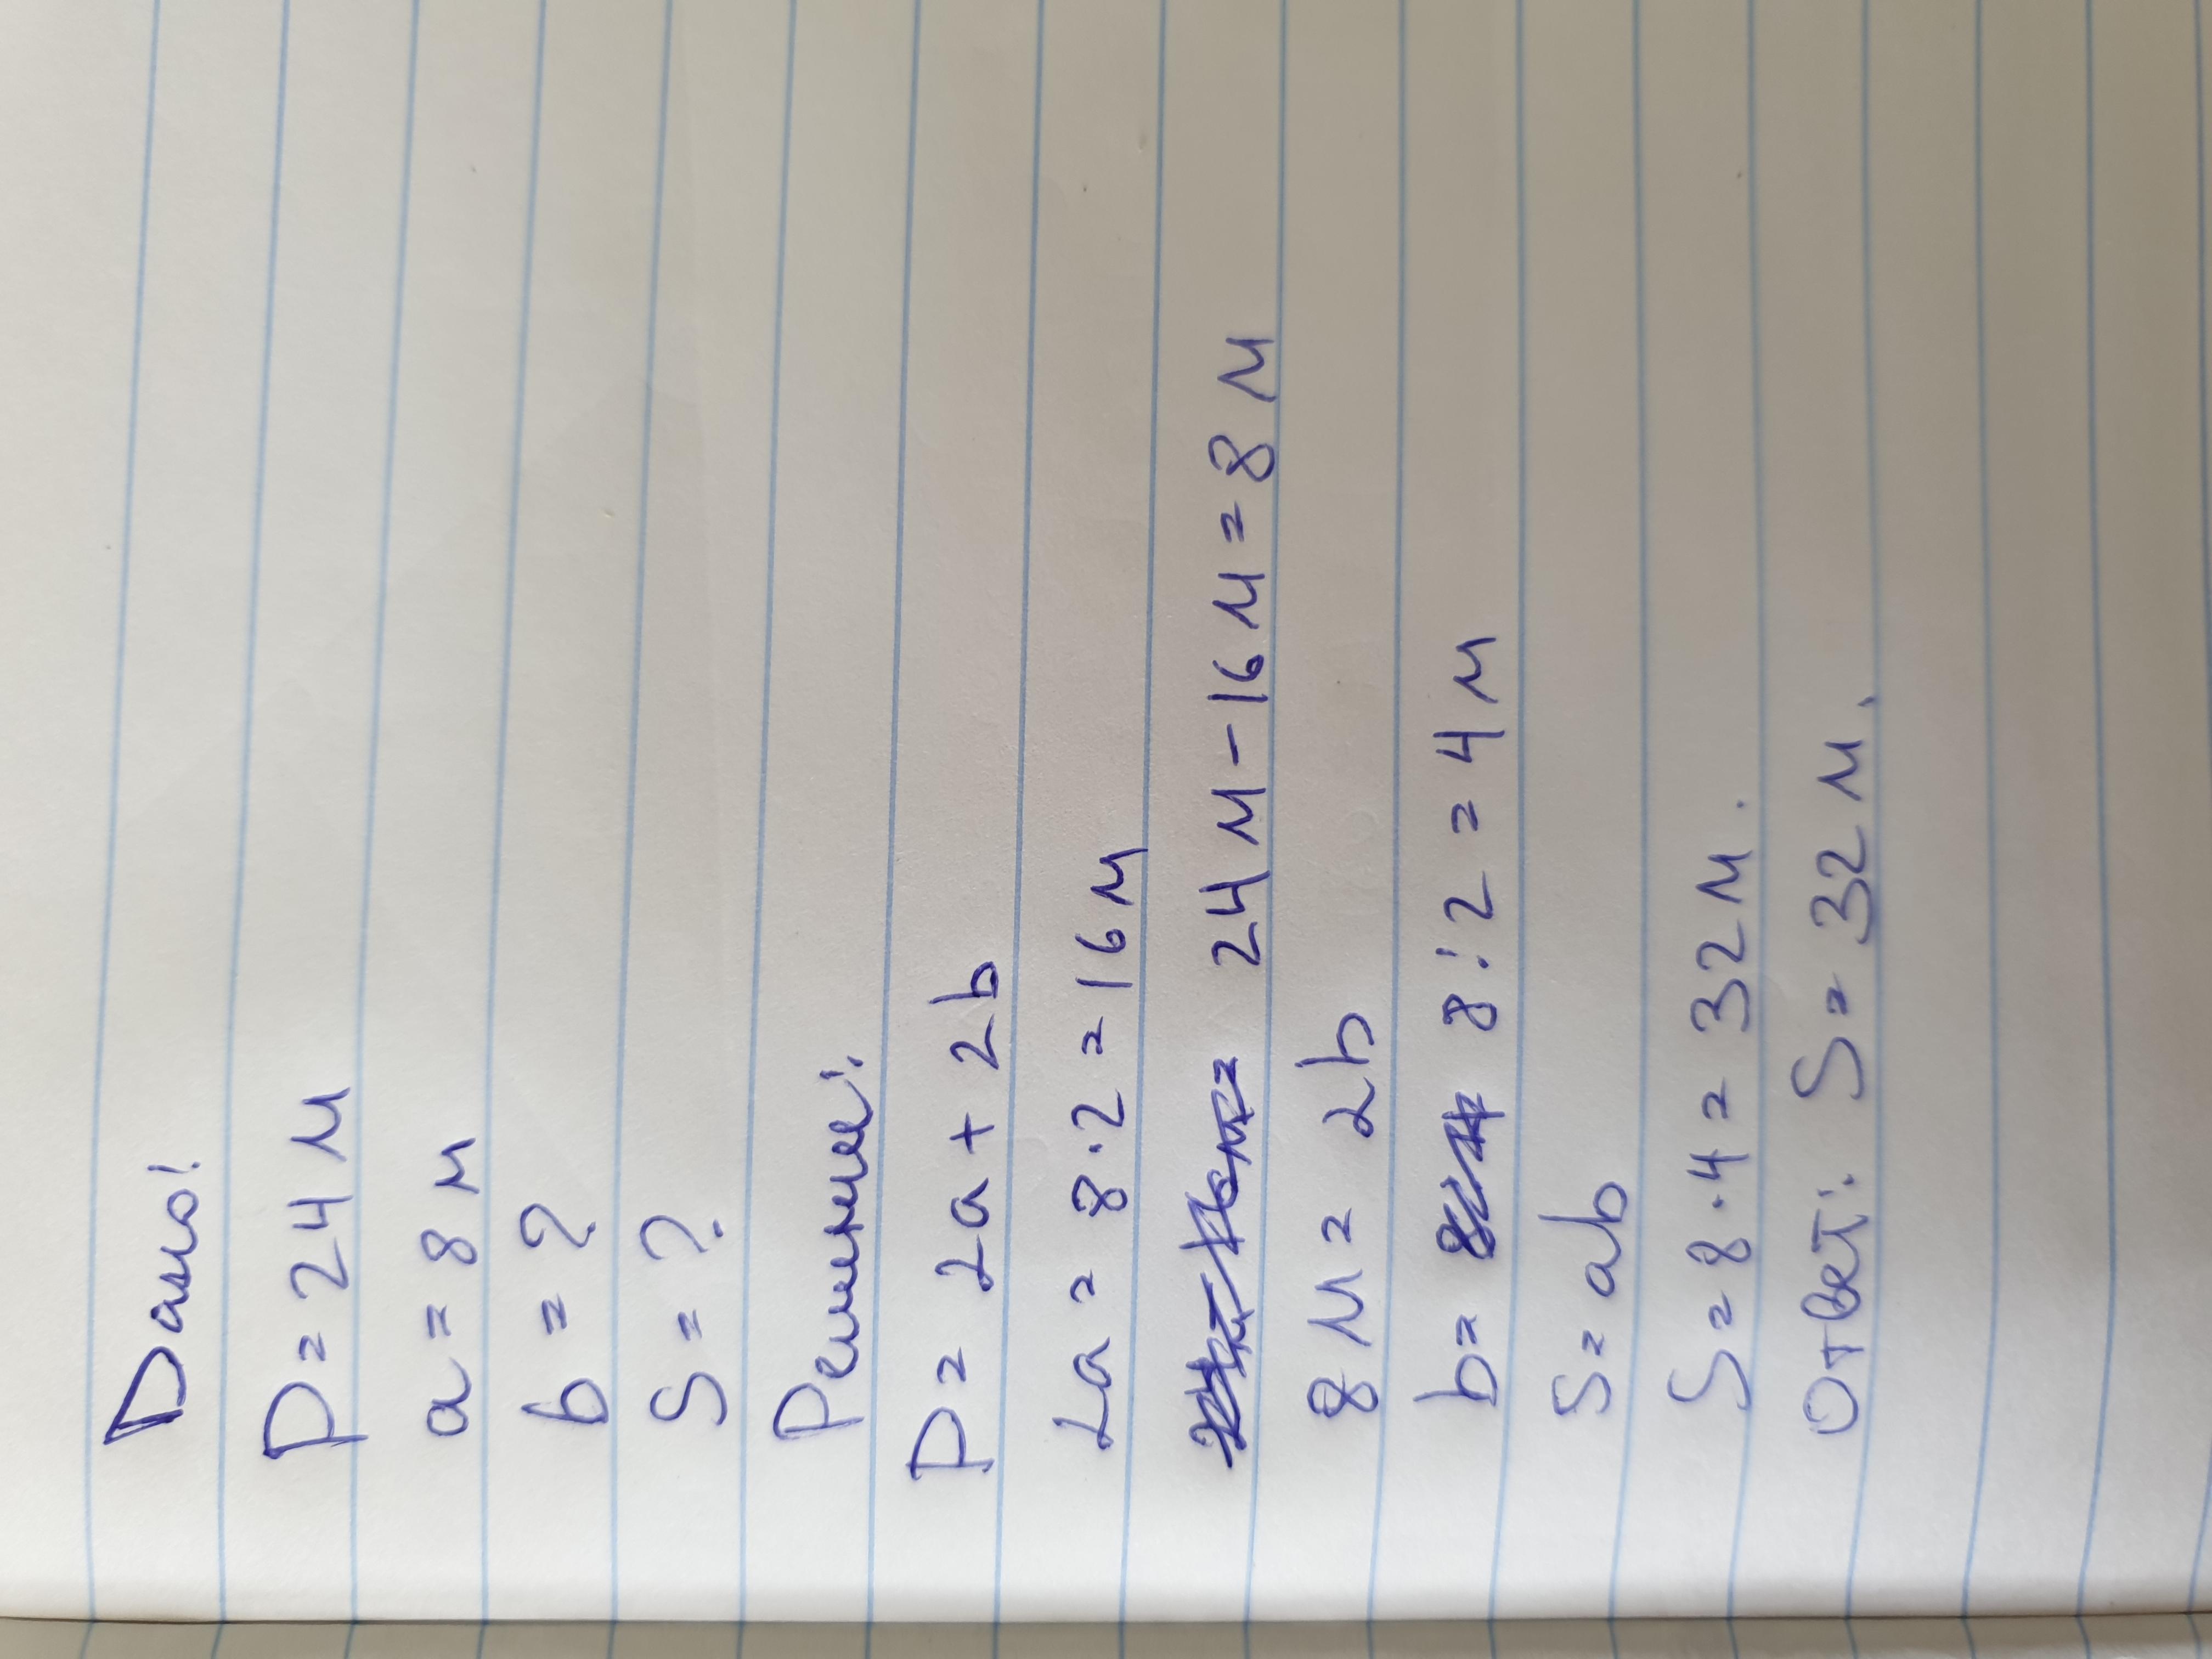 Дано:
P = 24 м
a = 8 м
b = ?
S = ?
Решение:
P = 2a + 2b
2a = 8 · 2 = 16 м
24 м - 16 м = 8 м
8 м = 2b
b = 8 : 2 = 4 м
S = ab
S = 8 · 4 = 32 м.
Ответ: S = 32 м.